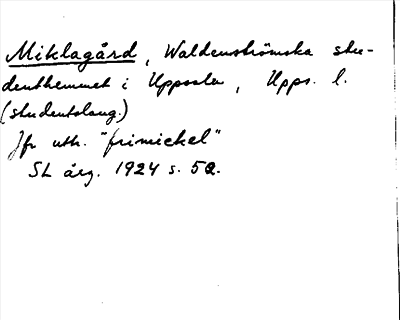 Miklagård, Waldenströmska stu-
denthemmet i Uppsala, Upps. l.
(studentslang.)
Jfr uttr. "frimickel"
SL årg. 1924 s. 52.